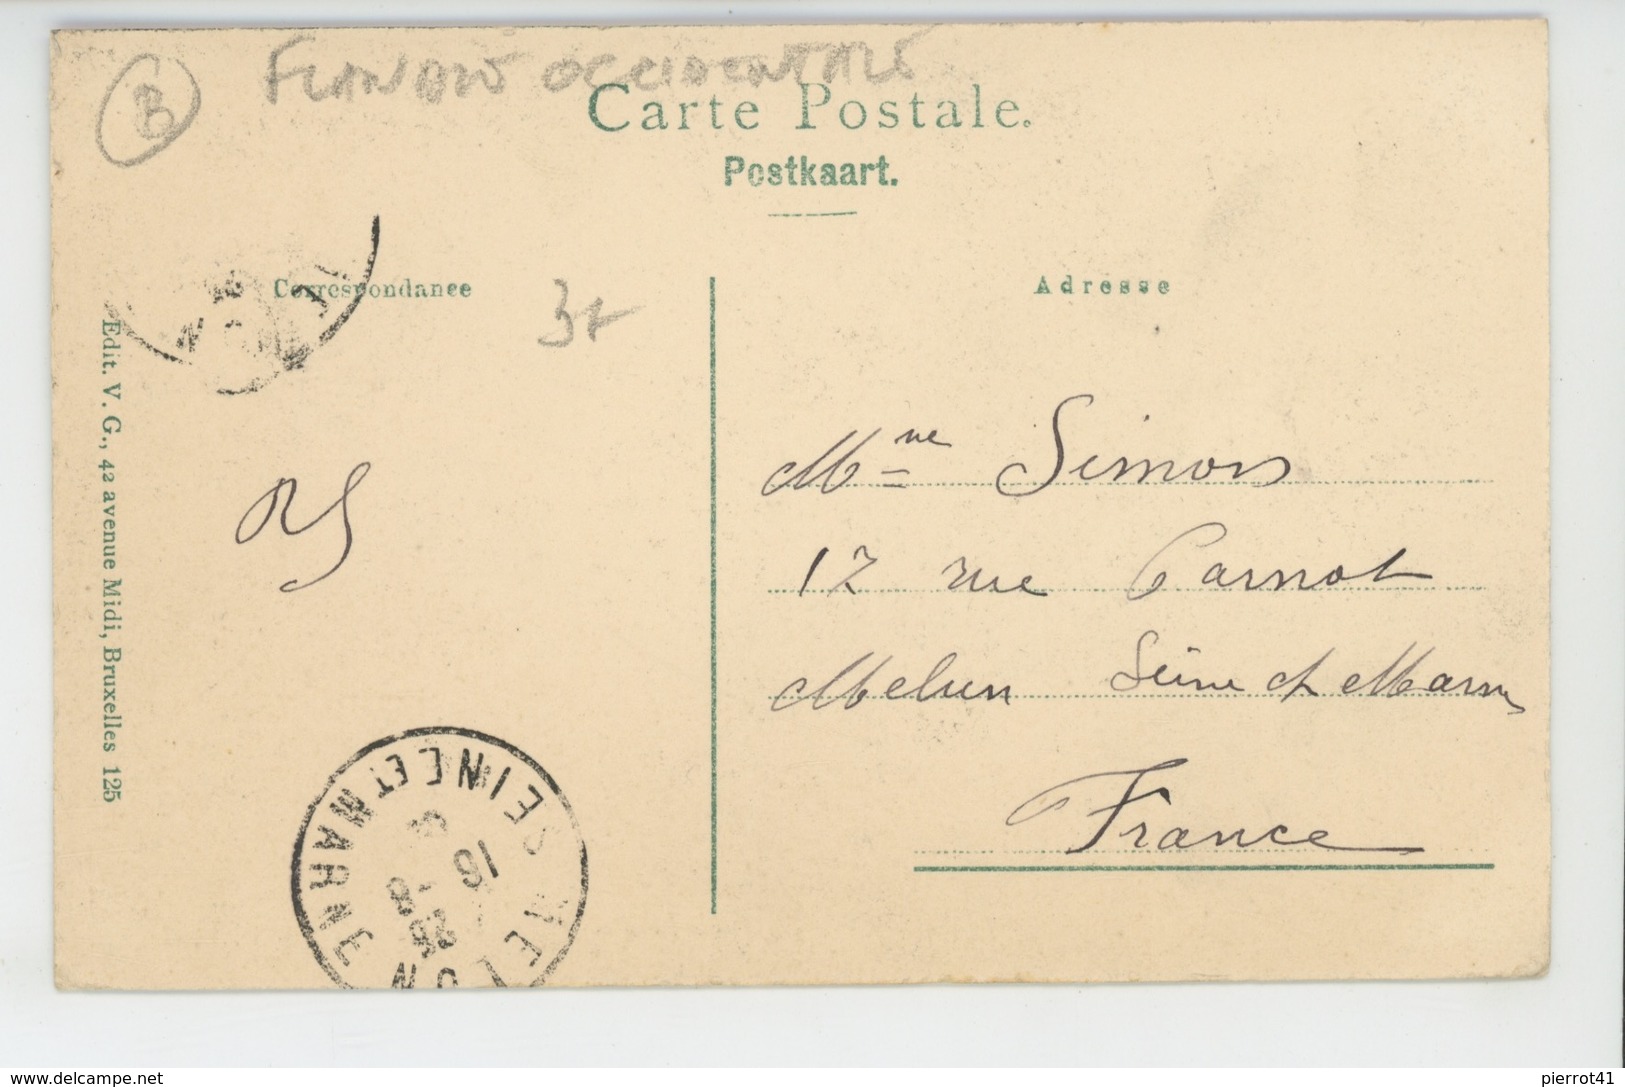 B
FLANDRE OCCIDENTALE
Carte Postale.
Postkaart.
Correspondance
Adresse
Edit. V. G., 42 avenue Midi, Bruxelles 125
RS
Mme Simon
17 rue Carnot
Melun Seine et Marne
France
MELUN
SEINE ET MARNE
16
25 -8
www.delcampe.net
pierrot41